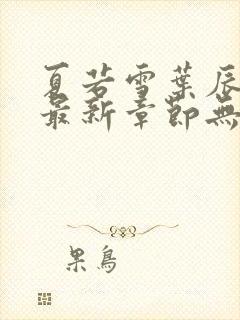 夏若雪葉辰
最新章節無
果鳥